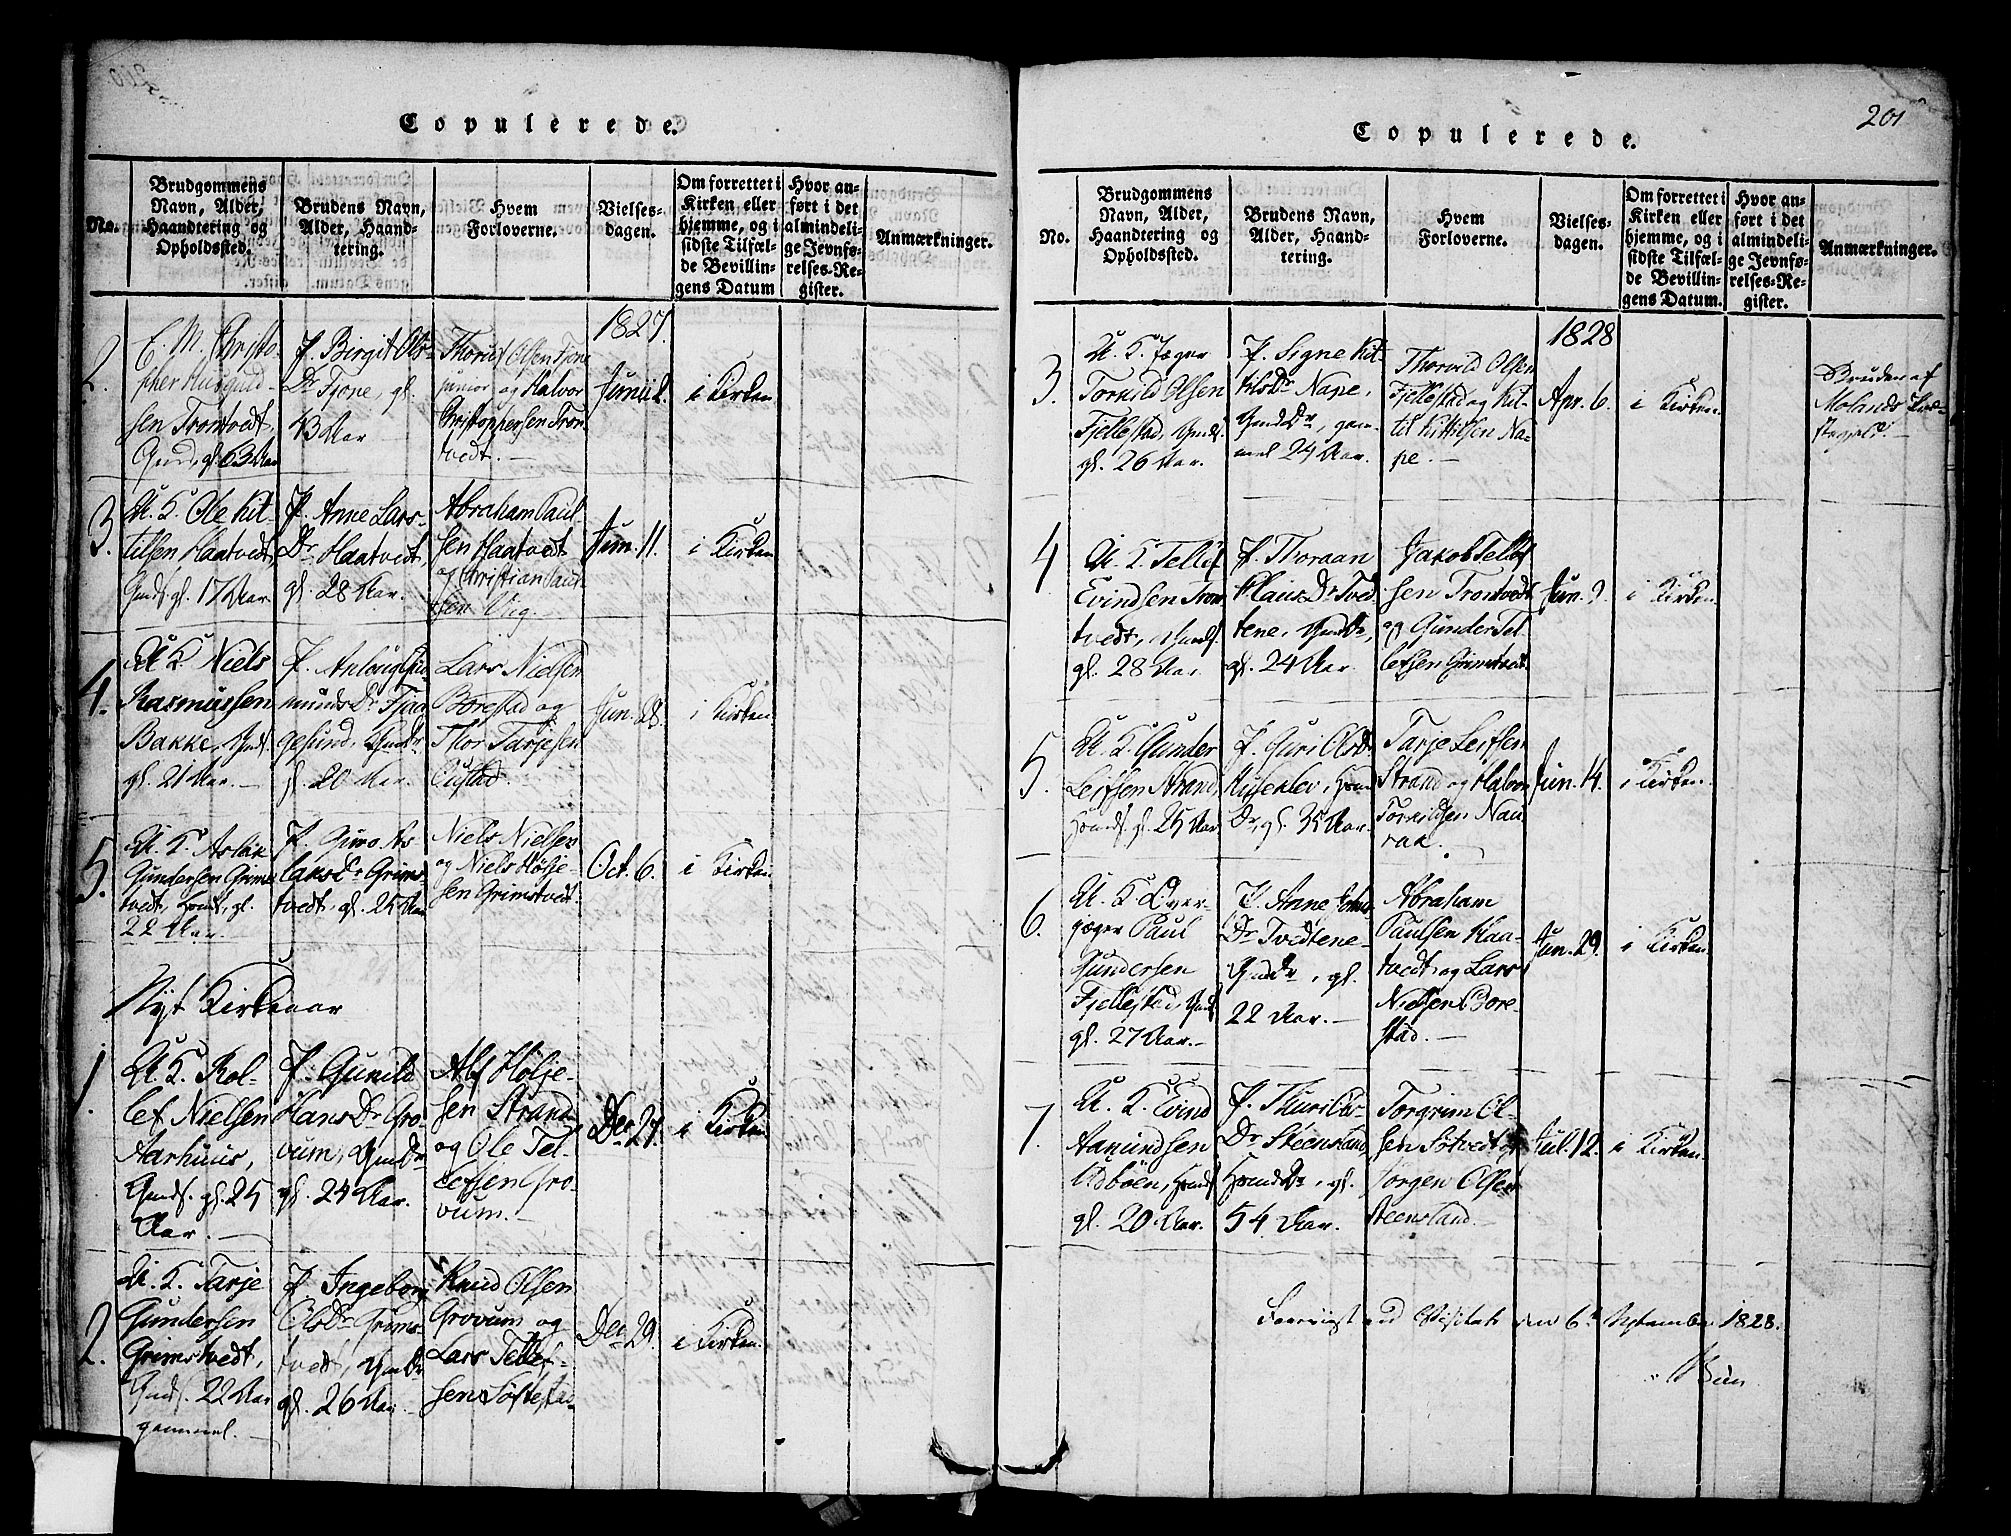 Copulerede.
No.
Brudgommens
Navn, Alder,
Haandtering og
Opholdssted.
Brudens Navn,
Alder, Haand-
tering.
Hvem
Forloverne.
Vielses-
dagen.
Om forrettet i
Kirken eller
hjemme, og i
sidste Tilfæl-
de Bevillin-
gens Datum
Hvor an-
ført i det
almindeli-
ge Jevnfø-
relses-Re-
gister.
Anmærkninger.
1827.
2.
E. M. Christo-
pher
sen Trontvedt,
gl. 63 Aar
P. Birgit Ols-
Dr. Fjone, gl.
43 Aar
Olsen Fjone
junior og Halvor
Christophersen Tron-
tvedt.
Junii 2.
i Kirken
3.
U. K. Ole Kit-
tilsen Haatvedt,
gl. 17 Aar.
P. Anne Lars-
Dr. Haatvedt,
gl. 28 Aar.
Abraham Paul-
sen Haatvedt
og Christian Paul-
sen Vig.
Jun. 11.
i Kirken
4.
U. K. Niels
Rasmussen
Bakke, Gmds.
gl. 21 Aar.
P.
munds Dr. Fjaa-
gesund, GmdDr
gl. 20 Aar.
Lars Nielsen
Borestad og
Thor Tarjesen
Jun. 28.
i Kirken
5.
U. K. Aslak
Gundersen Grims-
tvedt, Hmds., gl.
22 Aar.
P. Guro As-
laksDr. Grims-
tvedt, gl. 25 Aar
Niels Nielsen
og Niels Høljesen
Grimstvedt.
Oct. 6.
i Kirken
Nyt Kirkeaar
1.
U. K. Rol-
lef Nielsen
Aarhuus,
Gmds. gl. 25
Aar.
P. Gunild
HansDr. Gro-
vum, GmdDr
gl. 24 Aar.
Alf Hølje-
sen Strand
og Ole Tel-
lefsen Gro-
vum.
Dec. 27.
i Kirken
2.
U. K. Tarje
Gundersen
Grimstvedt,
Gmds. 22 Aar
gammel.
P. Ingeborg
OlsDr. Grims-
tvedt, GmdDr
gl. 26 Aar
Knud Olsen
Grovum og
Lars Tellef-
sen Søftestad
Dec. 29.
i Kirken.
201
Copulerede.
No.
Brudgommens
Navn, Alder,
Haandtering og
Opholdssted.
Brudens Navn,
Alder, Haand-
tering.
Hvem
Forloverne.
Vielses-
dagen.
Om forrettet i
Kirken eller
hjemme, og i
sidste Tilfæl-
de Bevillin-
gens Datum.
Hvor an-
ført i det
almindeli-
ge Jevnfø-
relses-Re-
gister.
Anmærkninger.
1828
3.
U. K. Jæger
Torkild Olsen
Fjellestad, Gmds.
gl. 26 Aar.
P. Signe Kit-
tilsDr. Nape,
GmdDr, gam-
mel 24 Aar.
Thorvild Olsen
Fjellestad og Kit-
til Kittilsen Na-
pe.
Apr. 6.
i Kirken.
Bruden af
Molands Præ-
stegjeld.
4
U. K. Tellef
Evindsen Tron-
tvedt, Gmds.
gl. 28 Aar
P. Thoraan
KlausDr. Tved-
tene, GmdDr,
gl. 24 Aar.
Jakob Tellef-
sen Trontvedt
og Gunder Tel-
lefsen Grimstvedt
i Kirken.
5.
U. K. Gunder
Leifsen Strand,
Hmds. gl. 25 Aar
P. Guri OlsDr.
Huseklev, Hmd
Dr, gl. 35 Aar.
Tarje Leifsen
Strand og Halvor
Torkildsen Nau-
rak.
Jun. 14.
i Kirken.
6.
U. K. Over-
jæger Paul
Gundersen
Fjellestad, Gmds
gl. 27 Aar.
P. Anne
Dr. Tvedtene
GmdDr, gl.
22 Aar.
Abraham
Paulsen Haa-
tvedt og Lars
Nielsen Bore-
stad.
Jun. 29.
i Kirken.
7.
U. K. Evind
Aamundsen
Hmds
gl. 20 Aar.
P. Thuri Ols-
Dr. Steensland,
HmdDr, gl.
54 Aar.
Torgrim Ol-
sen Søtvedt og
Jørgen Olsen
Steensland.
Jul. 12.
i Kirken.
Foreviist ved Visitats den 6te September 1828.